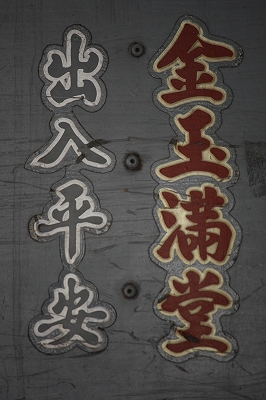 金玉滿堂
出入平安